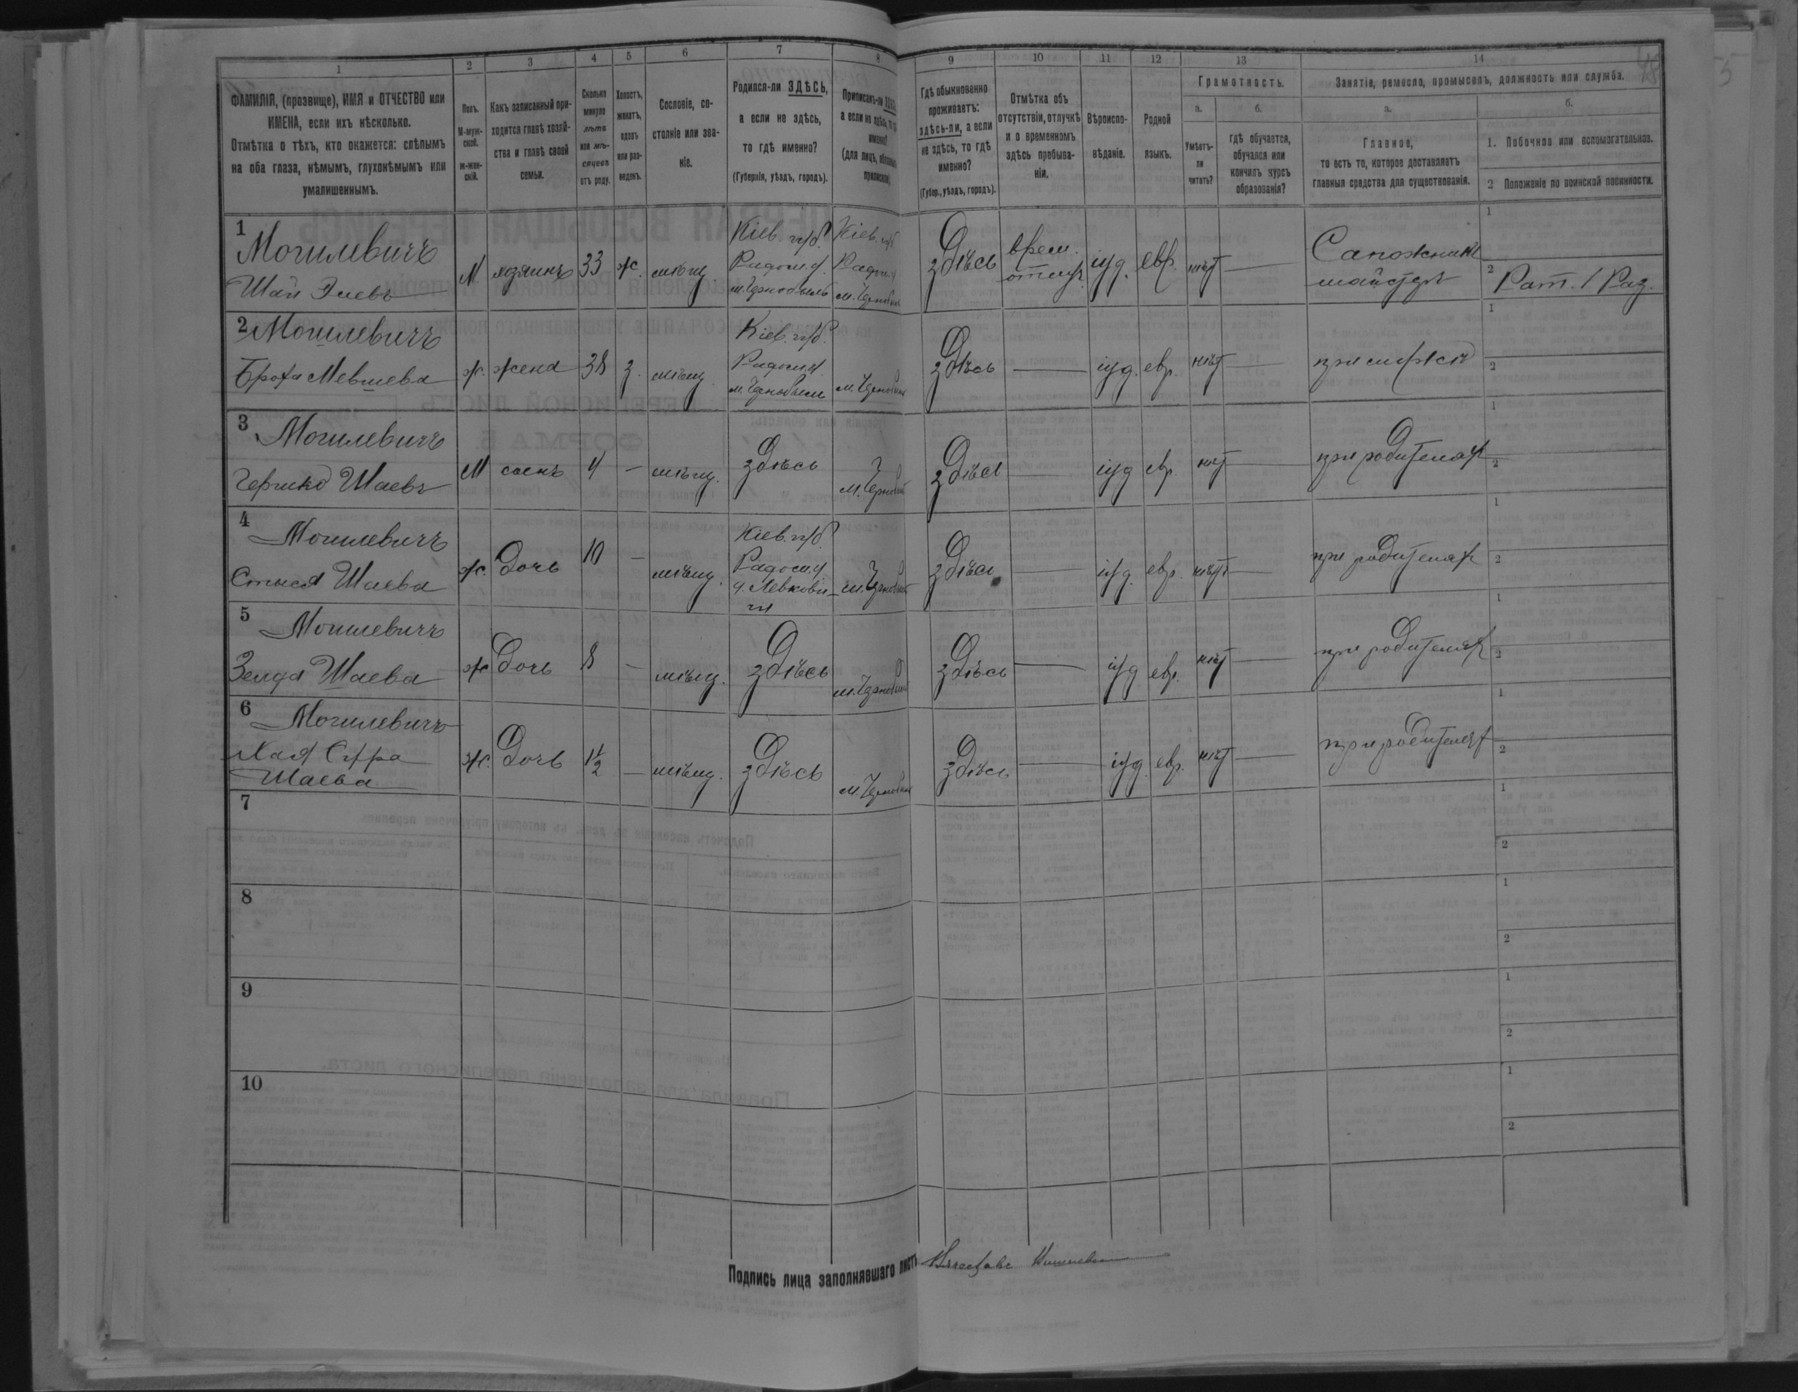 1
2
3
4
5
6
7
8
9
10
11
12
13
14
ФАМИЛІЯ, (прозвище), ИМЯ и ОТЧЕСТВО или
ИМЕНА, если ихъ нѣсколько.
Отмѣтка о тѣхъ, кто окажется: слѣпымъ
на оба глаза, нѣмымъ, глухонѣмымъ или
умалишеннымъ.
Полъ.
М-муж-
ской.
ж-жен-
скій.
Какъ записанный при-
ходится главѣ хозяй-
ства и главѣ своей
семьи.
Сколько
минуло
лѣтъ
или мѣ-
сяцевъ
отъ роду.
Холостъ,
женатъ,
вдовъ
или раз-
веденъ.
Сословіе, со-
стояніе или зва-
ніе.
Родился-ли ЗДѢСЬ,
а если не здѣсь,
то гдѣ именно?
(Губернія, уѣздъ, городъ).
Приписанъ-ли
а если не здѣсь,
именно?
(для лицъ,
Гдѣ обыкновенно
проживаетъ:
здѣсь-ли, а если
не здѣсь, то гдѣ
именно?
(Губер., уѣздъ, городъ).
Отмѣтка объ
отсутствіи, отлучкѣ
и о временномъ
здѣсь пребыва-
ніи.
Вѣроиспо-
вѣданіе.
Родной
языкъ.
Грамотность.
а.
б.
Умѣетъ-
ли
читать?
Гдѣ обучается,
обучался или
кончилъ курсъ
образованія?
Занятіе, ремесло, промыселъ, должность или служба.
а.
б.
Главное,
то есть то, которое доставляетъ
главныя средства для существованія.
1. Побочное или вспомогательное.
2 Положеніе по воинской повинности.
1
Могилевичъ
Шая Элевъ
М
хозяинъ
33
ж.
мѣщ.
Кіев. губ.
Радом. у.
м. Чернобыль
Кіев. губ.
м. Чернобыль
здѣсь
врем.
отлуч.
іуд.
евр.
нѣт
Сапожник
майстеръ
1
2
Рат. / Раз.
2 Могилевичъ
Броха Мевшева
ж.
жена
38
з.
мѣщ.
Кіев. губ.
Радом. у.
м. Чернобыль
здѣсь
іуд.
евр.
нѣт
при мужѣ
1
2
3 Могилевичъ
Гершко Шаевъ
М
сынъ
4
мѣщ.
здѣсь
м. Чернобыль
здѣсь
іуд.
евр.
нѣт
при родителях
1
2
4
Могилевичъ
Стыся Шаева
ж.
дочь
10
мѣщ.
Кіев. губ.
Радом. у.
д. Левкови-
чи
м. Чернобыль
здѣсь
іуд.
евр.
нѣт
при родителях
1
2
5
Могилевичъ
Зелда Шаева
ж.
дочь
8
мѣщ.
здѣсь
м. Чернобыль
здѣсь
іуд
евр.
нѣт
при родителях
1
2
6
Могилевичъ
Хая Сура
Шаева
ж.
дочь
1½
мѣщ.
здѣсь
м. Чернобыль
здѣсь
іуд.
евр.
нѣт
при родителях
1
2
7
1
2
8
1
2
9
1
2
10
1
2
Подпись лица заполнявшаго листъ